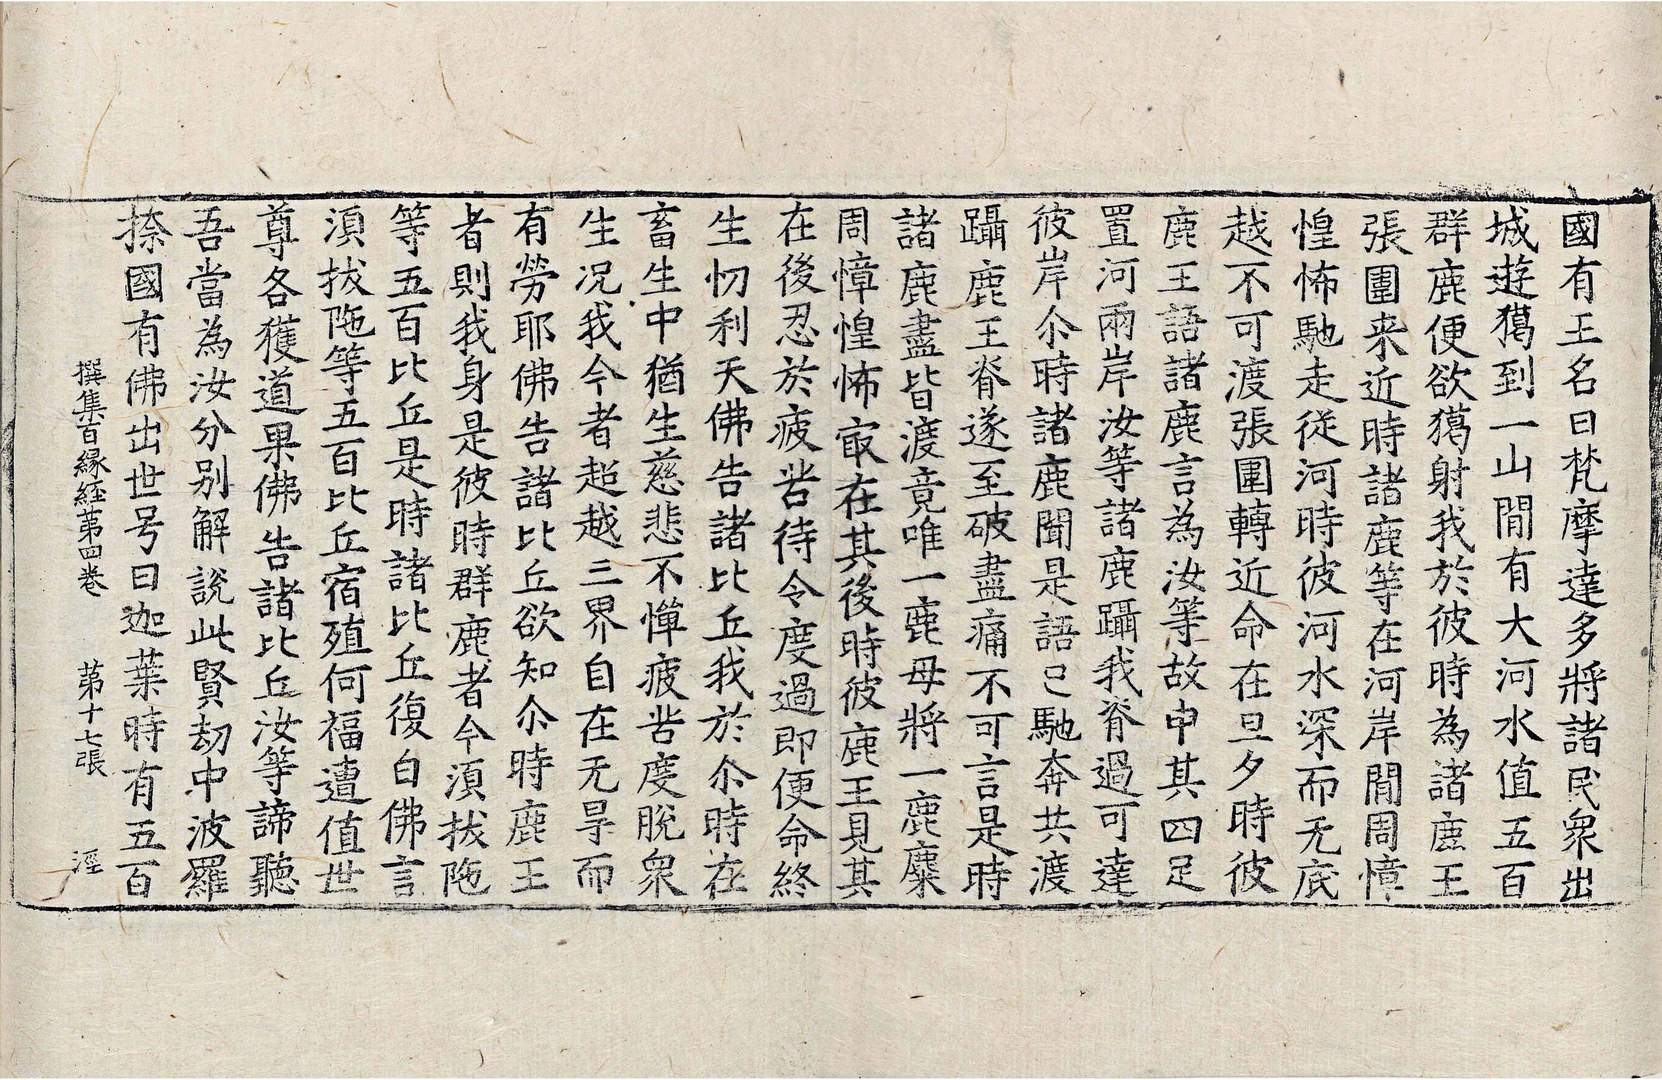 國有王名曰梵摩達多將諸民衆出
城遊獦到一山間有大河水值五百
群鹿便欲獦射我於彼時為諸鹿王
張圍来近時諸鹿等在河岸間周慞
惶怖馳走從河時彼河水深而无底
越不可渡張圍轉近命在旦夕時彼
鹿王語諸鹿言為汝等故申其四足
置河兩岸汝等諸鹿躡我脊過可達
彼岸尒時諸鹿聞是語已馳奔共渡
躡鹿王脊遂至破盡痛不可言是時
諸鹿盡皆渡竟唯一鹿母將一鹿麋
周慞惶怖㝡在其後時彼鹿王見其
在後忍於疲苦待令度過即便命終
生忉利天佛告諸比丘我於尒時在
畜生中猶生慈悲不憚疲苦度脫衆
生况我今者超越三界自在无㝵而
有勞耶佛告諸比丘欲知尒時鹿王
者則我身是彼時群鹿者今湏拔陁
等五百比丘是時諸比丘復白佛言
湏拔陁等五百比丘宿殖何福遭值世
尊各獲道果佛告諸比丘汝等諦聽
吾當為汝分别解說此賢劫中波羅
捺國有佛出世号曰迦葉時有五百
撰集百縁經第四巻 第十七張 涇